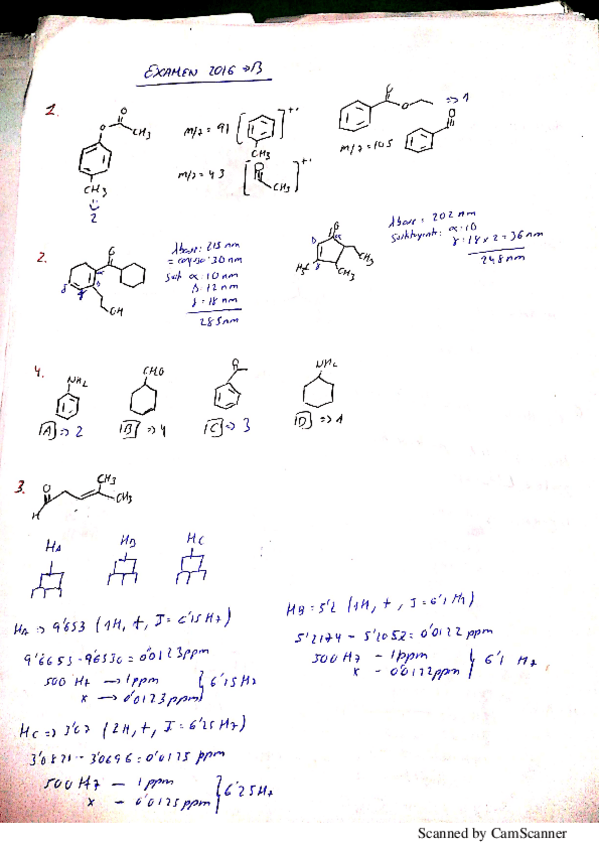 EXAMEN 2016 → B
1.
O
O
CH3
CH3
2
m/z = 91
CH3
+.
m/z = 43
CH3
+.
O
=> 1
m/z = 105
O
2.
OH
Base: 215 nm
= conjug: 30 nm
Sust α: 10 nm
δ = 18 nm
285 nm
H3C
CH3
CH3
Base = 202 nm
α: 10
γ: 18 x 2 = 36 nm
248 nm
4.
NH2
CHO
NH2
A => 2
B => 4
C => 3
D => 1
3.
O
H
CH3
CH3
HA
HB
HC
HA => 9'653 (1H, t, J = 6'15 Hz)
9'6653 - 9'6530 = 0'0123 ppm
500 Hz → 1 ppm
x → 0'0123 ppm
6'15 Hz
HB = 5'2 (1H, t, J = 6'1 Hz)
5'2174 - 5'2052 = 0'0122 ppm
500 Hz - 1 ppm
x - 0'0122 ppm
6'1 Hz
HC => 3'07 (2H, t, J = 6'25 Hz)
3'0821 - 3'0696 = 0'0125 ppm
500 Hz - 1 ppm
x - 0'0125 ppm
6'25 Hz
Scanned by CamScanner